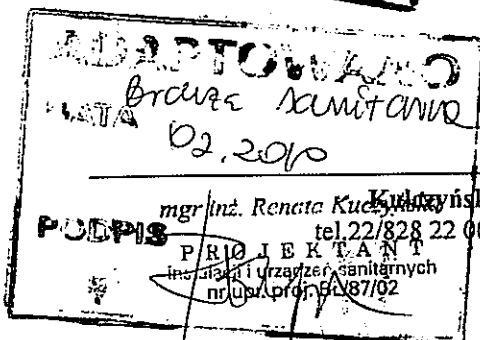 ADAPTOWANO
Branżę sanitarną
DATA
02.2010
mgr inż. Renata Kuczyńska
tel.22/828 22 00
PODPIS
PROJEKTANT
instalacji i urządzeń sanitarnych
nr upr. proj. St/87/02